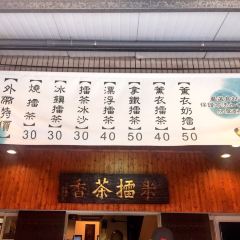 【外帶特價】
【燒擂茶】30
【冰鎮擂茶】30
【擂茶冰沙】30
【漂浮擂茶】40
【拿鐵擂茶】50
【薰衣擂茶】40
【薰衣奶擂】50
米擂茶香